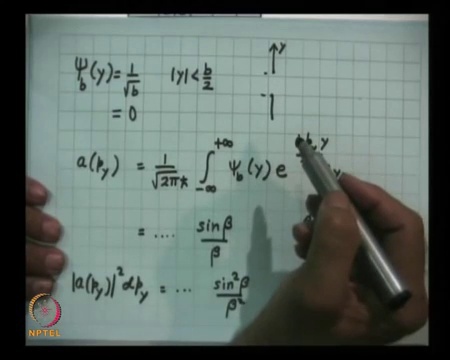 y
ψ_b(y) = 1/√b   |y| < b/2
= 0
a(p_y) = 1/√(2πħ) ∫_{-∞}^{+∞} ψ_b(y) e
= .... sinβ/β
|a(p_y)|² dp_y = ... sin²β/β²
NPTEL